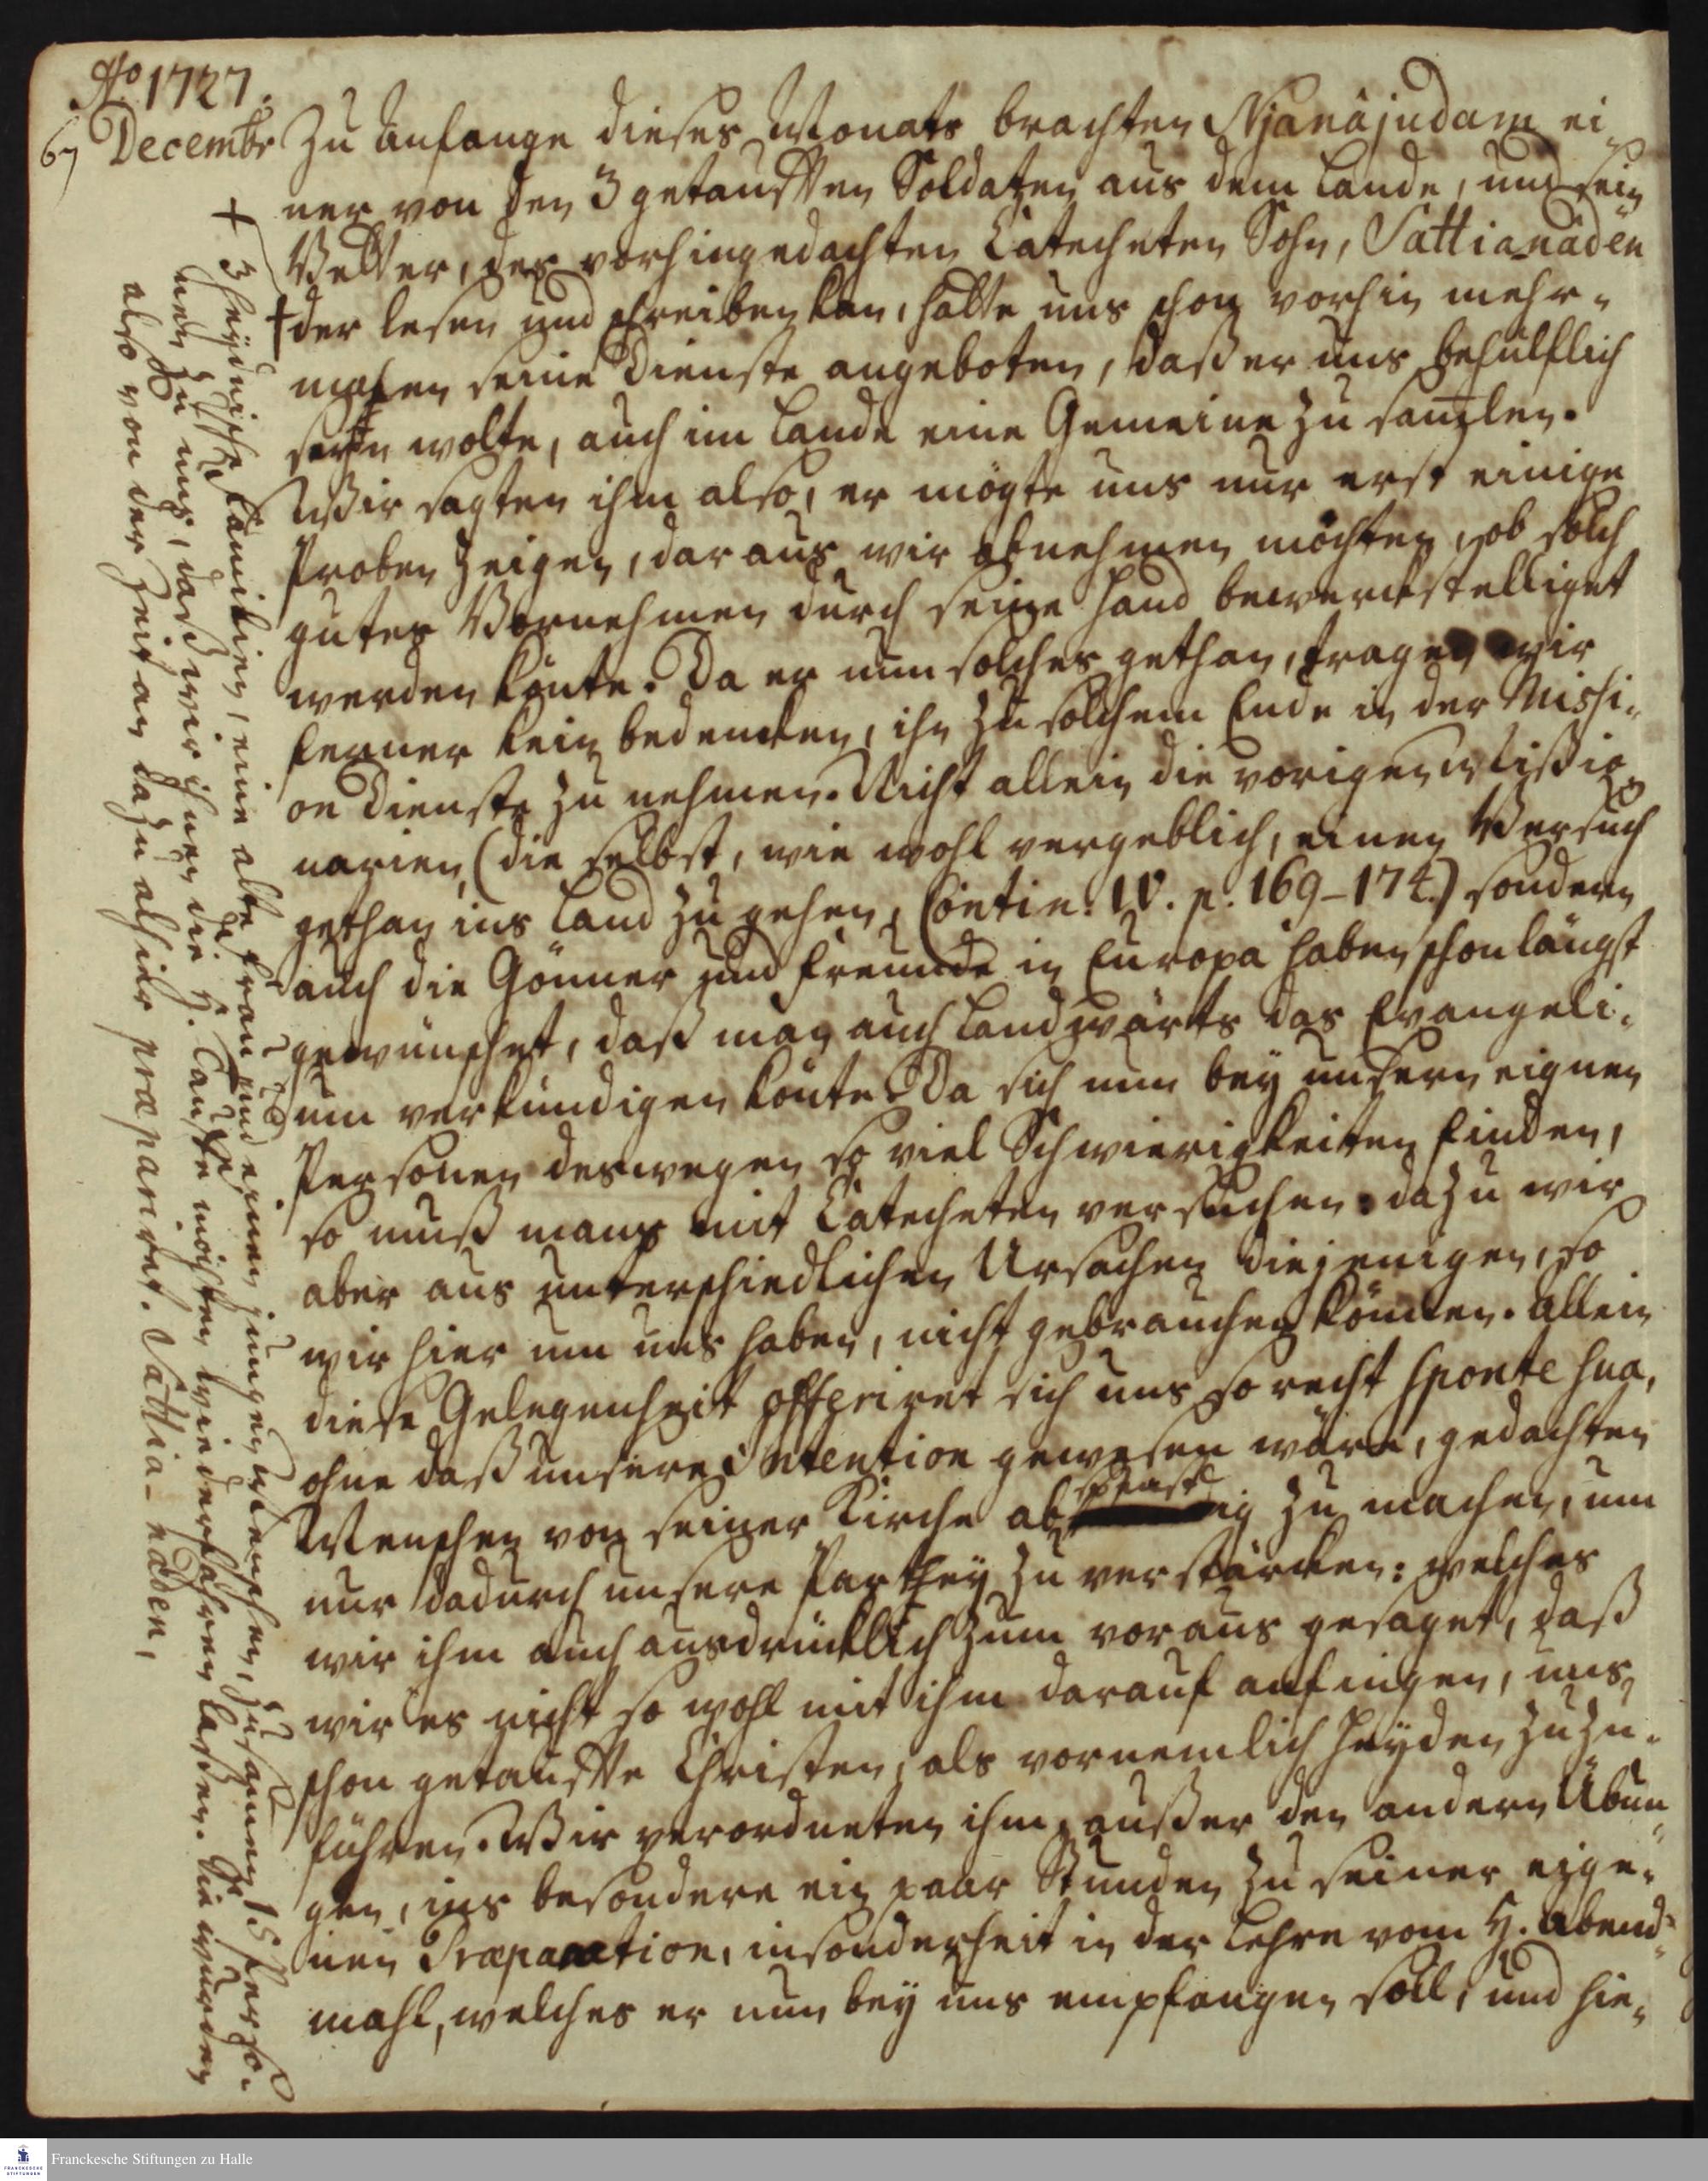 Ao 1727.
67 Decembr Zu Anfange dieses Monats brachten Njanájudam ei-
ner von den 3 getaufften Soldaten aus dem Lande, und sein
Vetter, des vorhingedachten Catecheten Sohn, Sattianäden
† der lesen und schreiben kan, hatte uns schon vorhin mehr-
malen seine Dienste angeboten, daß er uns behülflich
seyn wolte, auch im Lande eine Gemeine zu samlen.
Wir sagten ihm also, er mögte uns nur erst einige
Proben zeigen, daraus wir abnehmen möchten, ob solch
gutes Vornehmen durch seine Hand bewerckstelliget
werden könte. Da er nun solches gethan, tragen wir
ferner kein bedencken, ihn zu solchem Ende in der Missi-
on Dienste zu nehmen. Nicht allein die vorigen Missio-
narien, (die selbst, wie wohl vergeblich, einen Versuch
gethan ins Land zu gehen, Contin. IV. p. 169-174.) sondern
auch die Gönner und Freunde in Europa haben schon längst
gewünschet, daß man auch Landwärts das Evangeli-
um verkündigen könte. Da sich nun bey unsern eignen
Personen deswegen so viel Schwierigkeiten finden,
so muß mans mit Catecheten versuchen: dazu wir
aber aus unterschiedlichen Ursachen diejenigen, so
wir hier um uns haben, nicht gebrauchen können. Allein
diese Gelegenheit offeriret sich uns so recht sponte sua,
ohne daß unsere Intention gewesen wäre, gedachten
Menschen von seiner Kirche abspenstig zu machen, um
nur dadurch unsere Parthey zu verstärcken: welches
wir ihm auch ausdrücklich zum voraus gesaget, daß
wir es nicht so wohl mit ihm darauf anfingen, uns
schon getauffte Christen, als vornemlich Heyden zuzu-
führen. Wir verordneten ihm, außer den andern Übun-
gen, ins besondere ein paar Stunden zu seiner eige-
nen Præparation, insonderheit in der Lehre vom H. Abend-
mahl, welches er nun bey uns empfangen soll, und hie-
† 3 heydnische Familien, eine alte Frau und einen jungen Menschen, zusammen 15 Perso-
nen zu uns, daß wir ihnen die H. Tauffe möchten wiederfahren laßen. Sie wurden
also von der Zeit an dazu alhier præpariret. Sattia-näden,